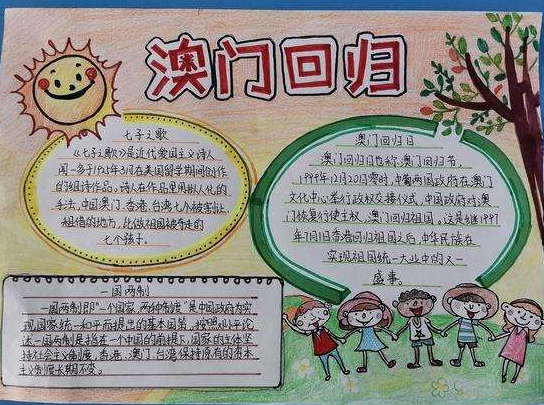 澳门回归
七子之歌
《七子之歌》是近代爱国主义诗人
闻一多于1925年3月在美国留学期间创作
的组诗作品。诗人在作品里用拟人化的
手法,中国澳门、香港、台湾七个被割让、
租借的地方,比做祖国被夺走的
七个孩子。
澳门回归日
澳门回归日也称:澳门回归节,
1999年12月20日零时,中葡两国政府在澳门
文化中心举行政权交接仪式,中国政府对澳
门恢复行使主权,澳门回归祖国,这是继1997
年7月1日香港回归祖国之后,中华民族在
实现祖国统一大业中的又一
盛事。
一国两制
一国两制即"一个国家,两种制度"是中国政府为实
现国家统一和平而提出的基本国策,按照邓小平论
述一国两制是指在一个中国的前提下,国家的主体坚
持社会主义制度,香港、澳门、台湾保持原有的资本
主义制度长期不变。